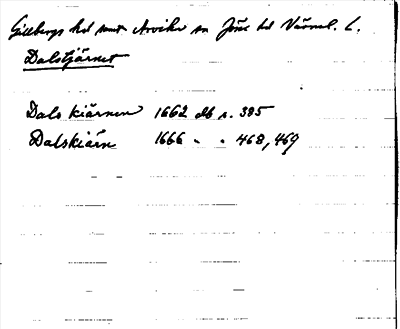 Gillbergs hd samt Arvika sn Jösse hd Värml. l.
Dalstjärnet
Dalskiärnen 1662 db s. 395
Dalskiärn 1666 " " 468, 469